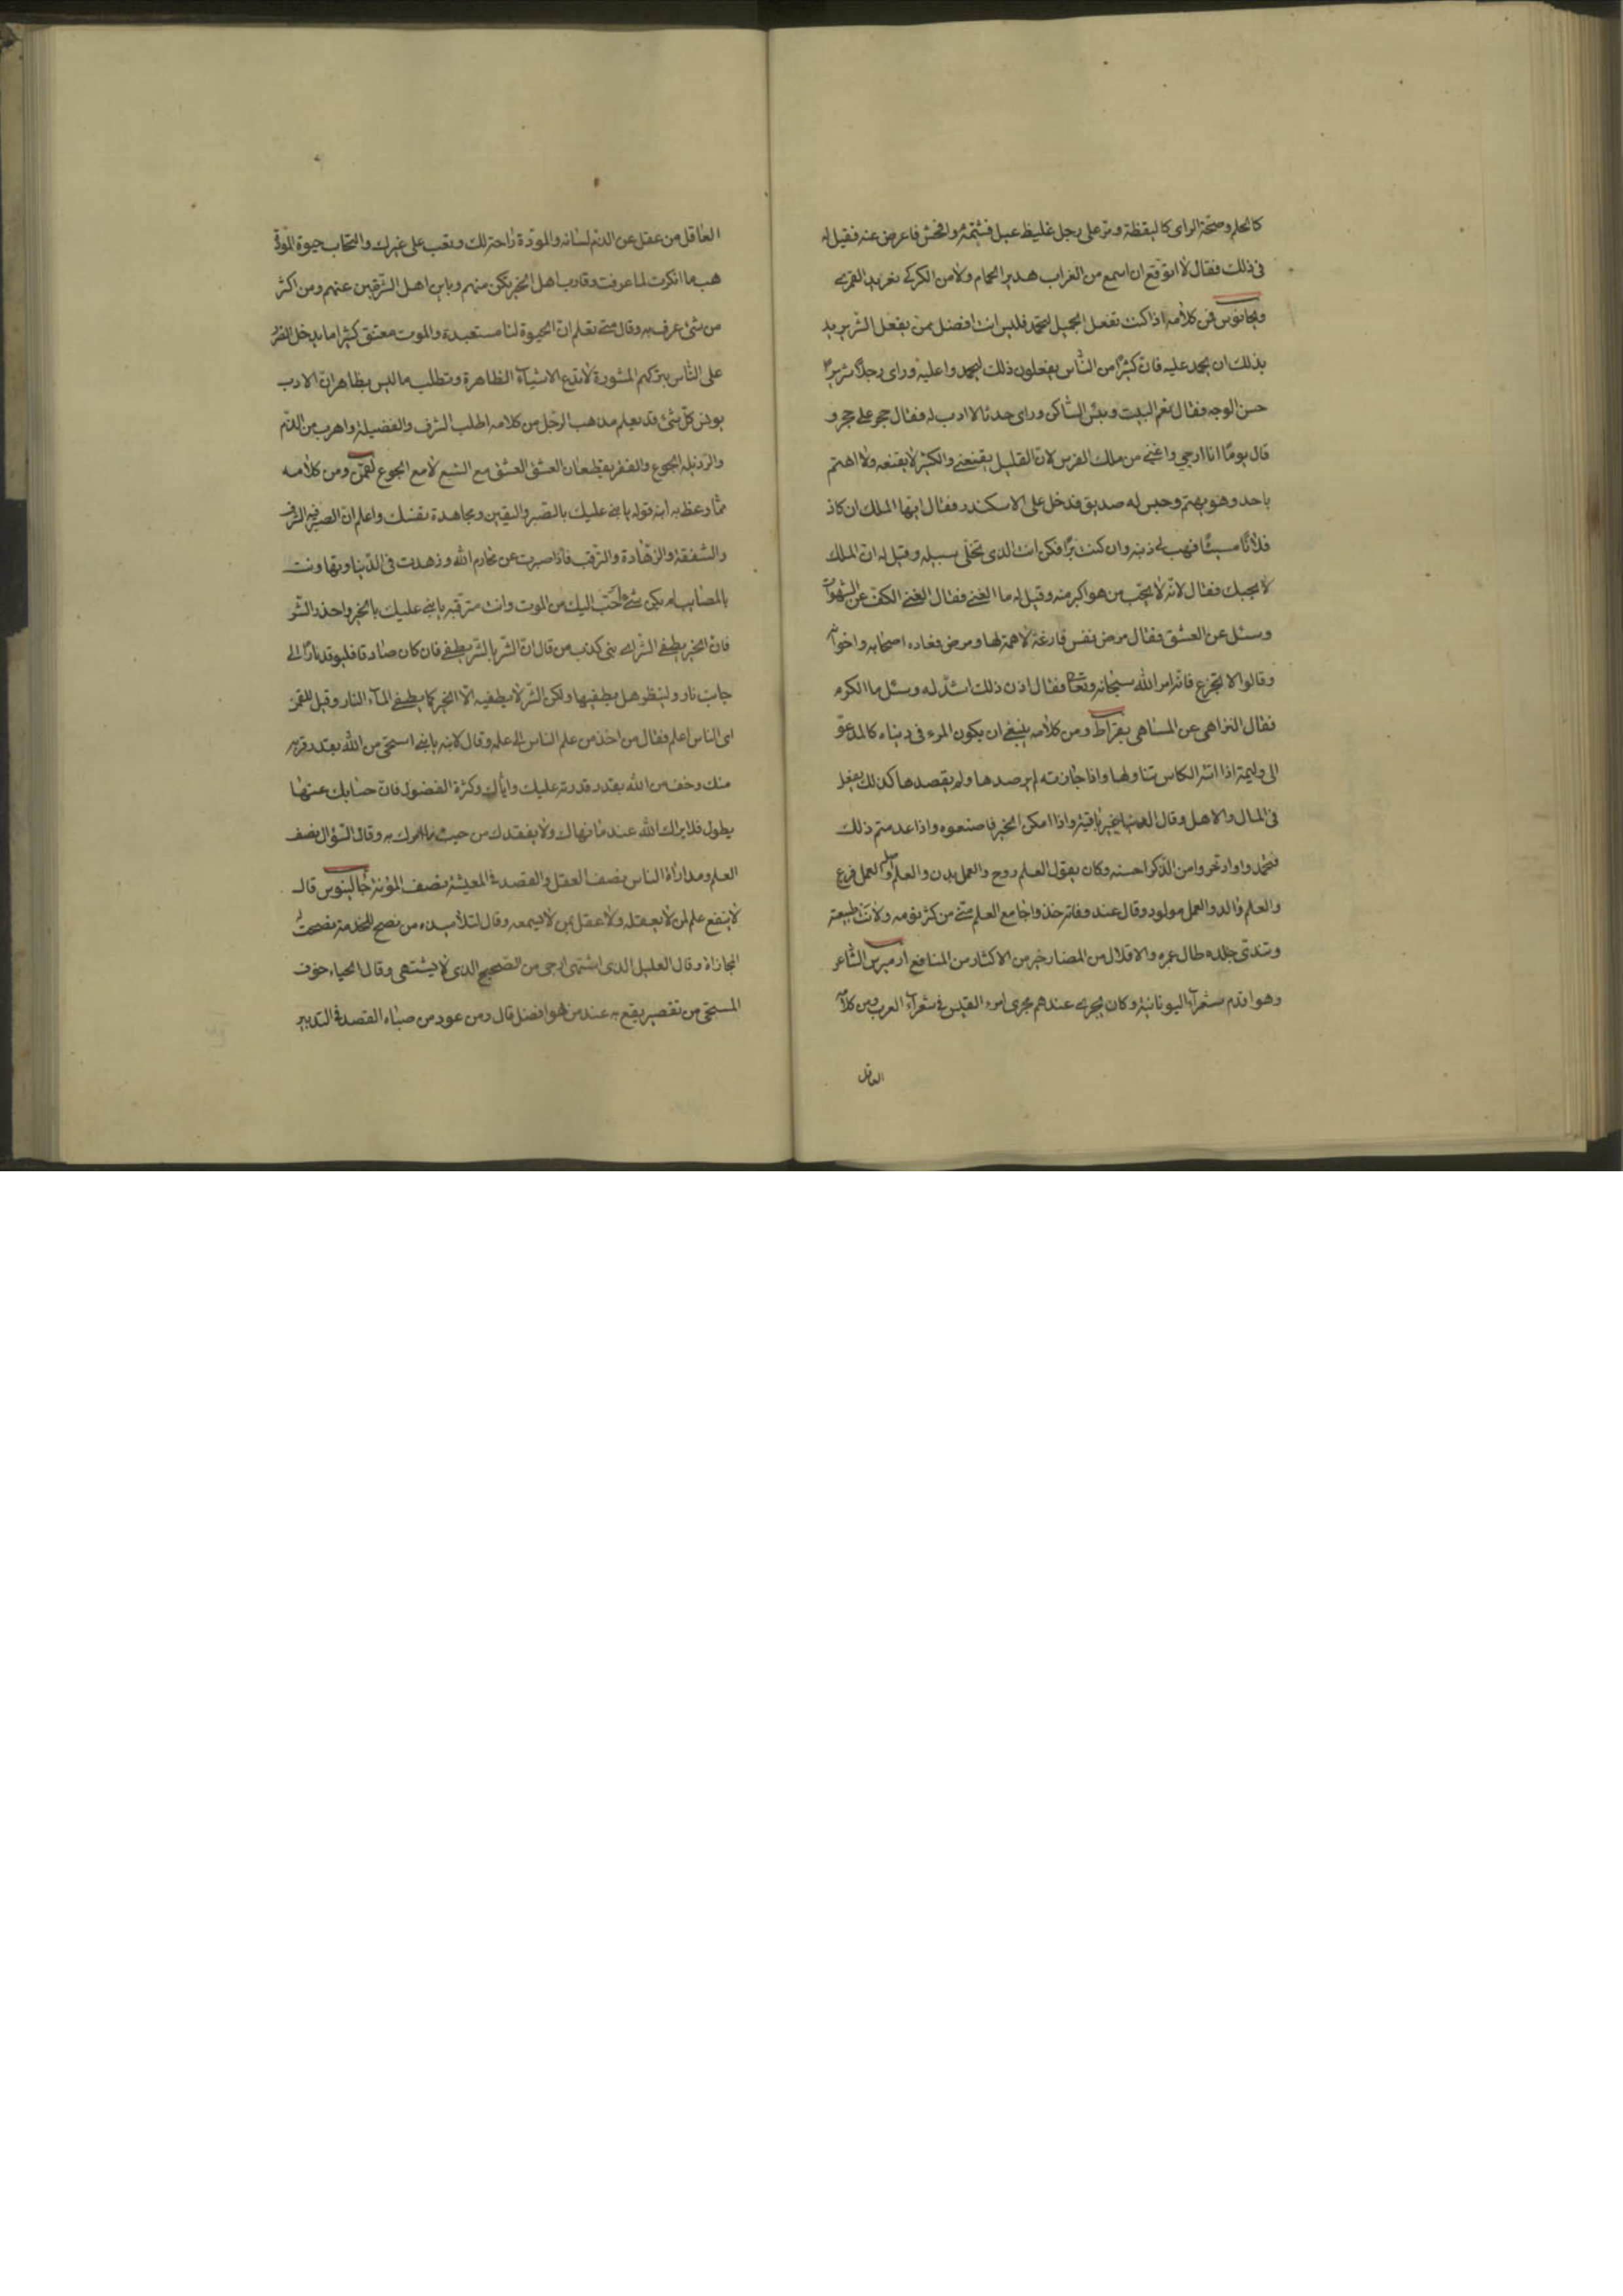 كالحلم وصحّة الراى كاليقظة ومرّ على رجل غليظ عبل فشتمه وافحش فاعرض عنه فقيل له
فى ذلك فقال لا اتوقّع ان اسمع من الغراب هدير الحمام ولا من الكركى تغريد القمرى
فمن كلامه اذا كنت تفعل الجميل لتحمد فليس انت افضل ممن يفعل الشر يريد
بذلك ان يحمد عليه فانّ كثيرًا من النّاس يفعلون ذلك ليحمدوا عليه وراى رجلًا شريرًا
حسن الوجه فقال نعم البيت وبئس السّاكن وراى حدثا لا ادب له فقال حجر على حجر و
قال يومًا انا ارجى واغنى من ملك الفرس لانّ القليل يقنعنى والكثير لا يقنعه ولا اهتم
باحد وهو يهتم وحبس له صديق فدخل على الاسكندر فقال ايها الملك ان كان
فلانًا مسيئًا فهب لى ذنبه وان كنت برًا فكن انت الذى تخلّى سبيله وقيل له انّ الملك
لا يحبك فقال لانّه لا يحبّ من هو اكبر منه وقيل له ما الغنى فقال الغنى الكفّ عن الشهوات
وسئل عن العشق فقال مرض نفس فارغة لا همة لها ومرض فعاده اصحابه واخوانه
وقالوا لا تجزع فانه امر الله سبحانه وتعالى فقال اذن ذلك اشدّ له وسئل ما الكرم
فقال النزاهى عن المساهى بقراط ومن كلامه ينبغى ان يكون المرء فى دنياه كالمدعوّ
الى وليمة اذا اتته الكاس تناولها واذا جازته لم يرصدها ولم يقصدها كذلك يفعل
فى المال والاهل وقال الدنيا غير باقية واذا امكن الخير فاصنعوه واذا عدمتم ذلك
فتحمدوا وادّخروا من الذّكر احسنه وكان يقول العلم روح والعمل بدن والعلم اصل والعمل فرع
والعلم والد والعمل مولود وقال عند وفاته خذوا جامع العلم منّى من كثر نومه ولانت طبيعته
وتندّى جلده طال عمره والاقلال من المضار خير من الاكثار من المنافع اوميرس الشاعر
وهو اقدم شعرآء اليونانية وكان يجرى عندهم مجرى امرء القيس فى شعرآء العرب ومن كلامه
العاقل
العاقل من عقل عن الذم لسانه والمودّة راحة لك وتعب على غيرك والتحاب حيوة المودّة
هب ما انكرت لما عرفت وقارب اهل الخير تكن منهم وباين اهل الشرّ تبن عنهم ومن اكثر
من شئ عرف به وقال متى تعلم انّ الحيوة لنا مستعبدة والموت معتق كثيرا ما يدخل الضرر
على النّاس بتركهم المشورة لا تدع الاشيآء الظاهرة وتطلب ما ليس بظاهر ان الادب
يوزن كلّ شئ قد يعلم مذهب الرّجل من كلامه اطلب الشرف والفضيلة واهرب من الذّم
والرّذيله الجوع والفقر يقطعان العشق العشق مع الشبع لا مع الجوع لقمن ومن كلامه
ممّا وعظ به ابنه قوله يا بنى عليك بالصّبر واليقين ومجاهدة نفسك واعلم ان الصبر فيه الشرف
والشفقة والزّهادة والترقب فاذا صبرت عن محارم الله وزهدت فى الدّنيا وتهاونت
بالمصايب لم يكن شئ احبّ اليك من الموت وانت مترقبه يا بنى عليك بالخير واحذر الشّر
فانّ الخير يطفى الشر اى بنى كذب من قال انّ الشر بالشر يطفى فان كان صادقا فليوقد نارًا الى
جانب نار ولينظر هل يطفيها ولكن الشر لا يطفيه الّا الخير كما يطفى المآء النار وقيل للقمن
اى الناس اعلم فقال من اخذ من علم الناس الى علمه وقال لابنه يا بنى استحى من الله بقدر قربه
منك وخف من الله بقدر قدرته عليك واياك وكثرة الفضول فانّ حسابك عنها
يطول فلا يراك الله عند ما نهاك ولا يفقدك من حيث ما امرك به وقال السّؤال نصف
العلم ومداراة الناس نصف العقل والقصد فى المعيشة نصف المؤنة جالينوس قال
لا ينفع علم لمن لا يعقله ولا عقل لمن لا يسمعه وقال لتلاميذه من نصح الخدمة نصحت له
المجازاة وقال العليل الذى اشتهى ارجى من الصّحيح الذى لا يشتهى وقال الحياء خوف
المستحى من تقصير يقع به عند من هو افضل قال ومن عود من صباه القصد فى التدبير